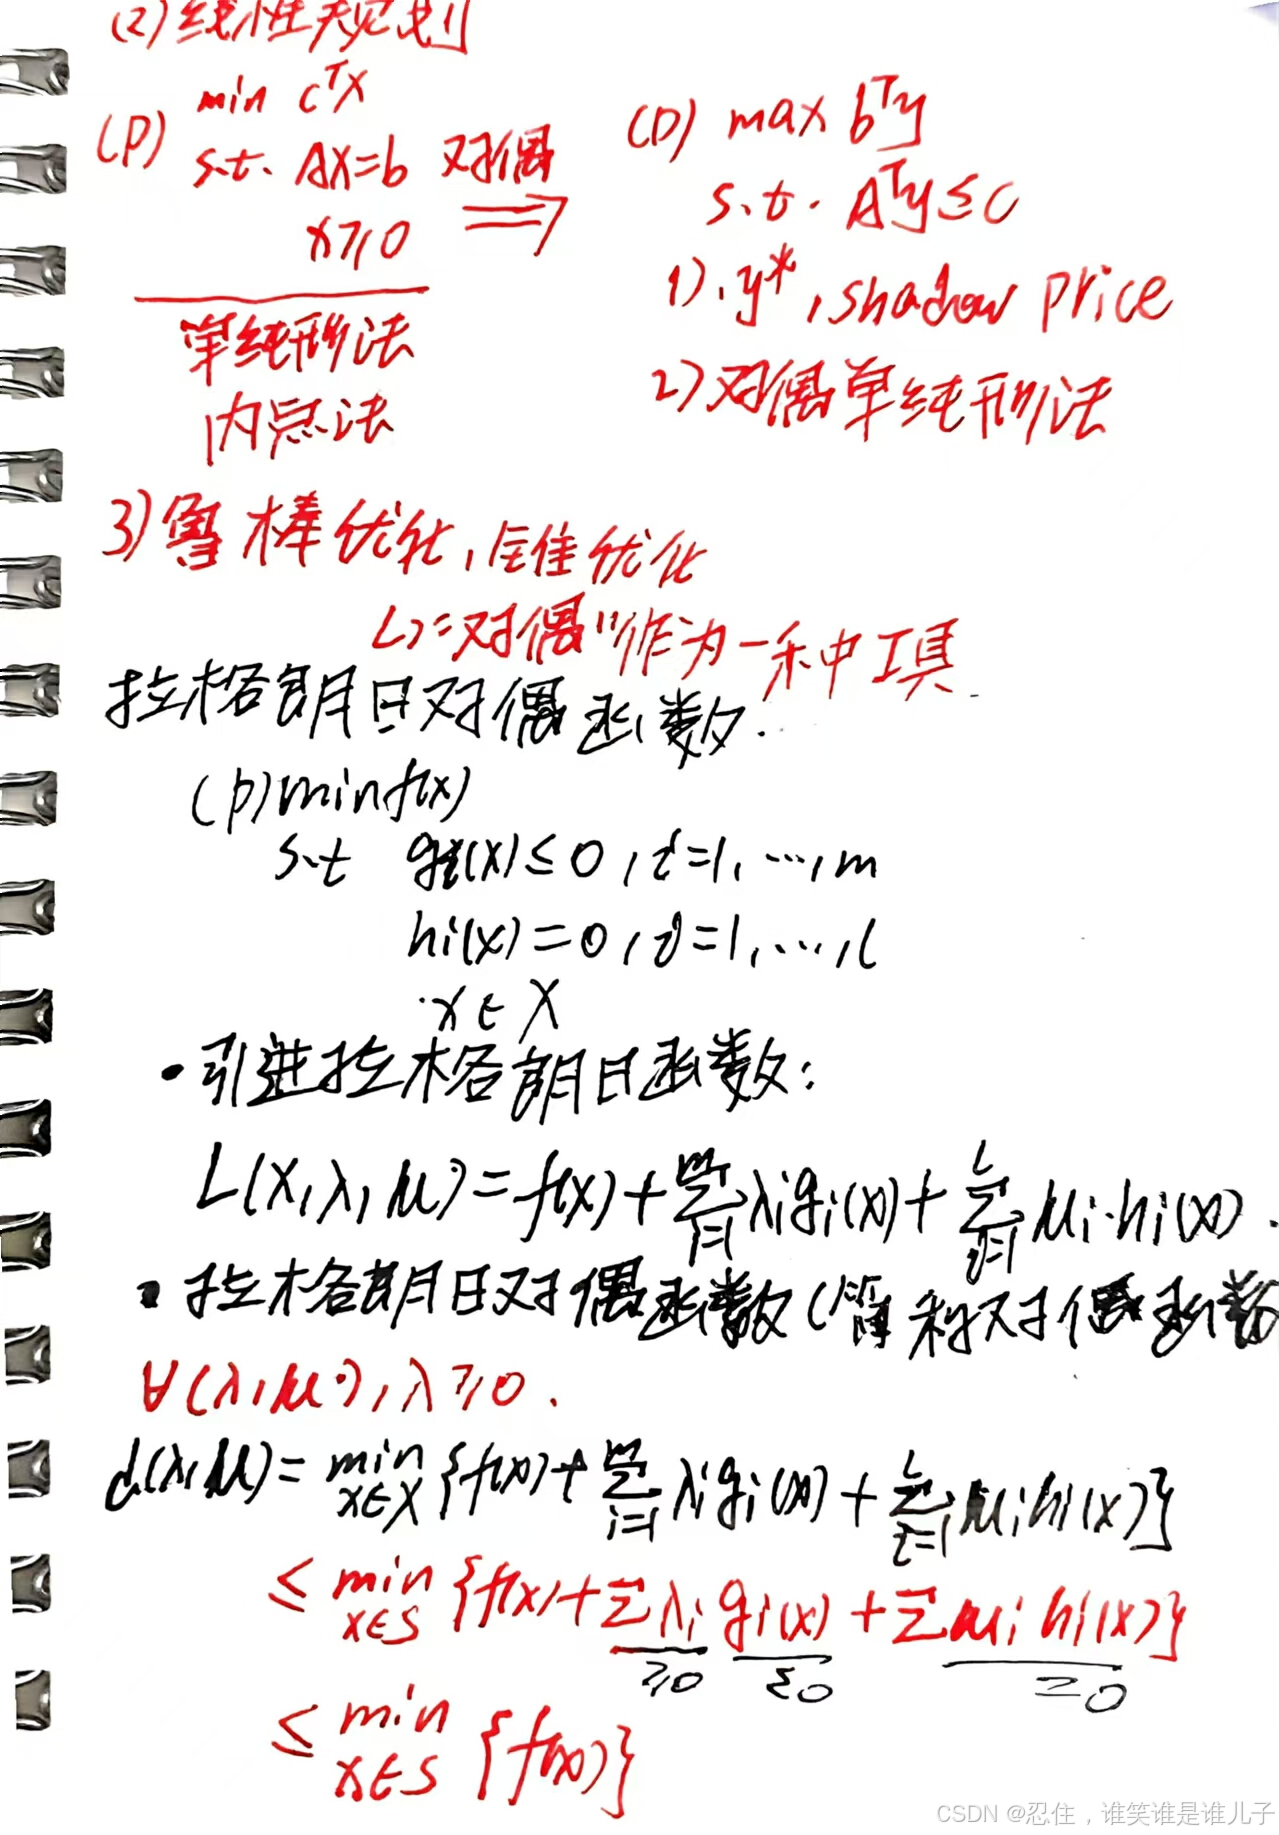 (2) 线性规划
(P) min cᵀx
s.t. Ax=b 对偶
x≥0 ⟹
单纯形法
内点法
(D) max bᵀy
s.t. Aᵀy≤c
1). y*, shadow price
2) 对偶单纯形法
3) 鲁棒优化,锥优化
L>="对偶"作为一种工具
拉格朗日对偶函数.
(p) min f(x)
s.t gi(x)≤0, i=1, …, m
hi(x)=0, i=1, …, l
x∈X
• 引进拉格朗日函数:
L(x,λ,μ)=f(x)+∑ᵢ₌₁ᵐ λigi(x)+∑ᵢ₌₁ˡ μi·hi(x).
• 拉格朗日对偶函数(简称对偶函数
∀(λ,μ), λ≥0.
d(λ,μ)=min x∈X {f(x)+∑ᵢ₌₁ᵐ λigi(x)+∑ᵢ₌₁ˡ μihi(x)}
≤ min x∈S {f(x)+∑λi gi(x)+∑μi hi(x)}
≥0 ≤0 =0
≤ min x∈S {f(x)}
CSDN @忍住，谁笑谁是谁儿子